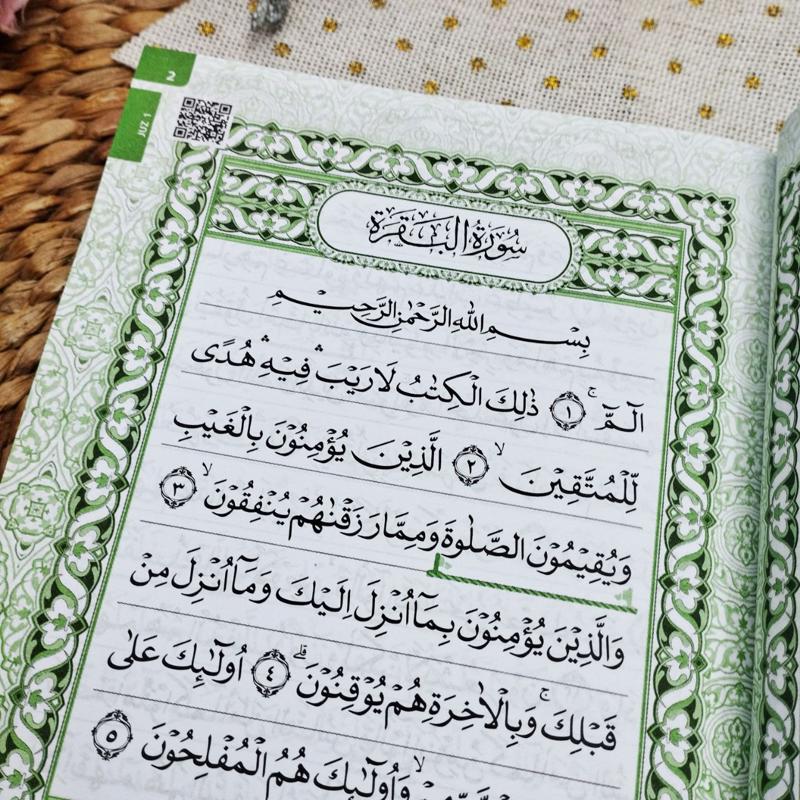 2
JUZ 1
سُوْرَةُ الْبَقَرَةِ
بِسْمِ اللّٰهِ الرَّحْمٰنِ الرَّحِيْمِ
الۤمّۤ ۚ ١ ذٰلِكَ الْكِتٰبُ لَا رَيْبَ ۛ فِيْهِ ۛ هُدًى
لِّلْمُتَّقِيْنَ ۙ ٢ الَّذِيْنَ يُؤْمِنُوْنَ بِالْغَيْبِ
وَيُقِيْمُوْنَ الصَّلٰوةَ وَمِمَّا رَزَقْنٰهُمْ يُنْفِقُوْنَ ۙ ٣
وَالَّذِيْنَ يُؤْمِنُوْنَ بِمَآ اُنْزِلَ اِلَيْكَ وَمَآ اُنْزِلَ مِنْ
قَبْلِكَ ۚ وَبِالْاٰخِرَةِ هُمْ يُوْقِنُوْنَ ۗ ٤ اُولٰۤىِٕكَ عَلٰى
وَاُولٰۤىِٕكَ هُمُ الْمُفْلِحُوْنَ ٥